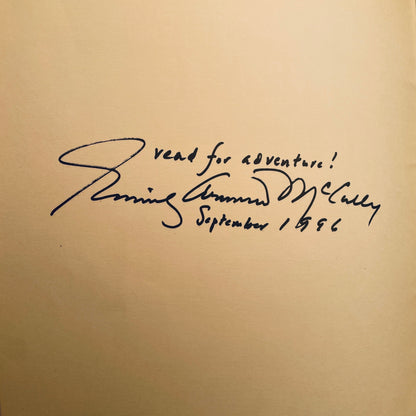 read for adventure!
Emily Arnold McCully
September 1996